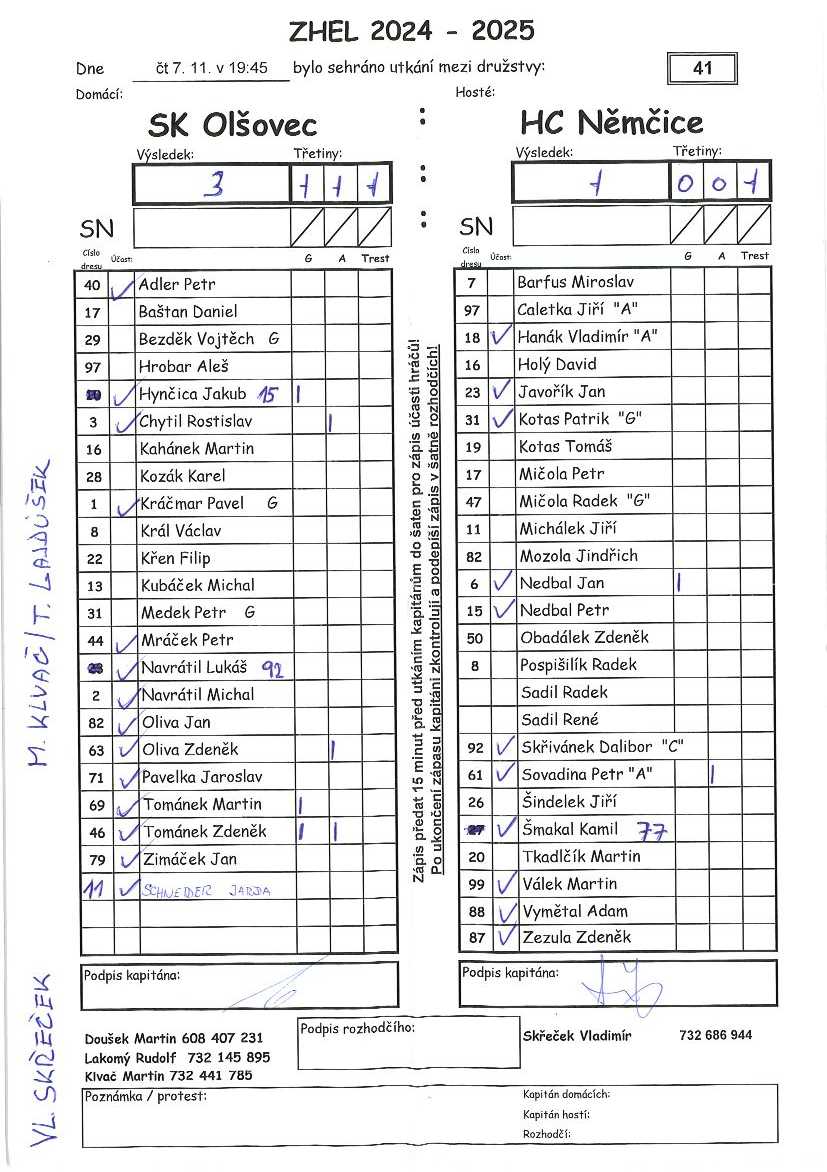 ZHEL 2024 - 2025
Dne čt 7. 11. v 19:45 bylo sehráno utkání mezi družstvy: 41
Domácí: Hosté:
SK Olšovec : HC Němčice
Výsledek: Třetiny: Výsledek: Třetiny:
3 1 1 1 : 1 0 0 1
SN : SN
Číslo dresu Účast: G A Trest
40 ✓ Adler Petr
17 Baštan Daniel
29 Bezděk Vojtěch G
97 Hrobar Aleš
✓ Hynčica Jakub 15 |
3 ✓ Chytil Rostislav |
16 Kahánek Martin
28 Kozák Karel
1 ✓ Kráčmar Pavel G
8 Král Václav
22 Křen Filip
13 Kubáček Michal
31 Medek Petr G
44 ✓ Mráček Petr
✓ Navrátil Lukáš 92
2 ✓ Navrátil Michal
82 ✓ Oliva Jan
63 ✓ Oliva Zdeněk |
71 ✓ Pavelka Jaroslav
69 ✓ Tománek Martin |
46 ✓ Tománek Zdeněk | |
79 ✓ Zimáček Jan
11 ✓ SCHNEIDER JARDA
Podpis kapitána:
Zápis předat 15 minut před utkáním kapitánům do šaten pro zápis účasti hráčů!
Po ukončení zápasu kapitáni zkontrolují a podepíší zápis v šatně rozhodčích!
Číslo dresu Účast: G A Trest
7 Barfus Miroslav
97 Caletka Jiří "A"
18 ✓ Hanák Vladimír "A"
16 Holý David
23 ✓ Javořík Jan
31 ✓ Kotas Patrik "G"
19 Kotas Tomáš
17 Mičola Petr
47 Mičola Radek "G"
11 Michálek Jiří
82 Mozola Jindřich
6 ✓ Nedbal Jan |
15 ✓ Nedbal Petr
50 Obadálek Zdeněk
8 Pospišilík Radek
Sadil Radek
Sadil René
92 ✓ Skřivánek Dalibor "C"
61 ✓ Sovadina Petr "A" |
26 Šindelek Jiří
27 ✓ Šmakal Kamil 77
20 Tkadlčík Martin
99 ✓ Válek Martin
88 ✓ Vymětal Adam
87 ✓ Zezula Zdeněk
Podpis kapitána:
M. KLVAČ / T. LAJDŮŠEK
VL. SKŘEČEK
Doušek Martin 608 407 231
Lakomý Rudolf 732 145 895
Klvač Martin 732 441 785
Podpis rozhodčího:
Skřeček Vladimír 732 686 944
Poznámka / protest:
Kapitán domácích:
Kapitán hostí:
Rozhodčí: